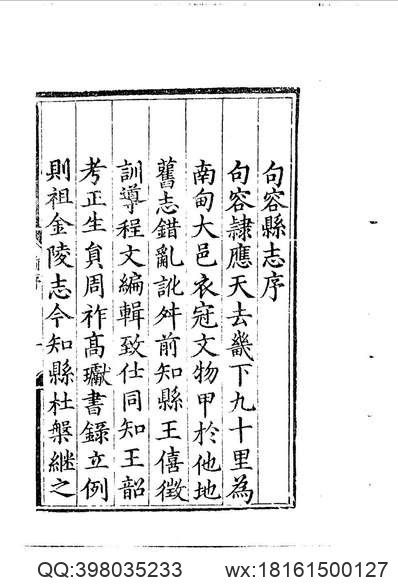 句容縣志序
句容隷應天去畿下九十里為
南甸大邑衣冠文物甲於他地
舊志錯亂訛舛前知縣王僖徵
訓導程文編輯致仕同知王韶
考正生員周祚髙瓛書錄立例
則祖金陵志今知縣杜槃継之
QQ:398035233 wx:18161500127